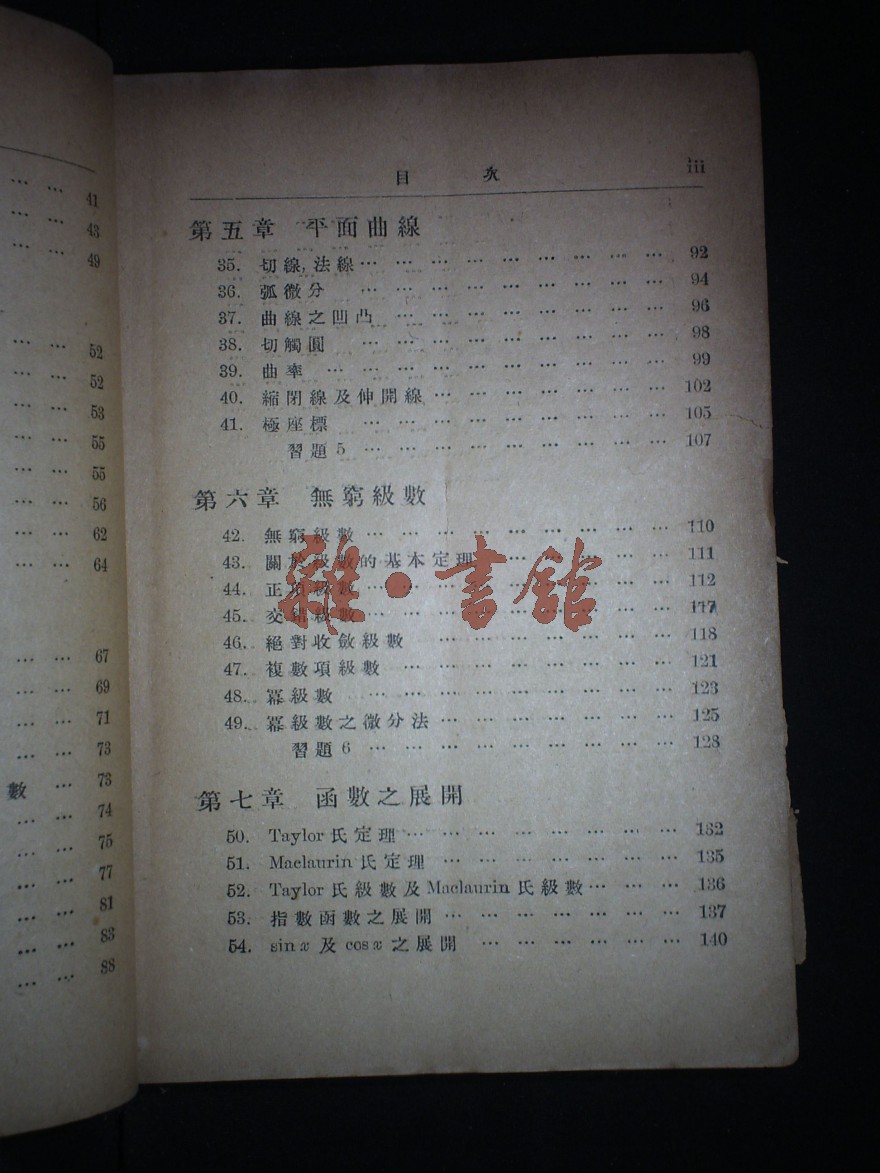 41
43
49
52
52
53
55
55
56
62
64
67
69
71
73
數 … 73
74
75
77
81
83
88
目 次 iii
第五章 平面曲線
35. 切線,法線 … … … … … … … … … 92
36. 弧微分 … … … … … … … … … 94
37. 曲線之凹凸 … … … … … … … … 96
38. 切觸圓 … … … … … … … … … 98
39. 曲率 … … … … … … … … … … 99
40. 縮閉線及伸開線 … … … … … … … 102
41. 極座標 … … … … … … … … … 105
習題 5 … … … … … … … … … 107
第六章 無窮級數
42. 無窮級數 … … … … … … … … … 110
43. 關於級數的基本定理 … … … … … 111
44. 正項級數 … … … … … … … … … 112
45. 交錯級數 … … … … … … … … … 117
46. 絕對收斂級數 … … … … … … … 118
47. 複數項級數 … … … … … … … … 121
48. 冪級數 … … … … … … … … … 123
49. 冪級數之微分法 … … … … … … … 125
習題 6 … … … … … … … … … 128
雜·書館
第七章 函數之展開
50. Taylor 氏定理 … … … … … … … … 132
51. Maclaurin 氏定理 … … … … … … … 135
52. Taylor 氏級數及 Maclaurin 氏級數 … … … 136
53. 指數函數之展開 … … … … … … … 137
54. sin x 及 cos x 之展開 … … … … … … 140